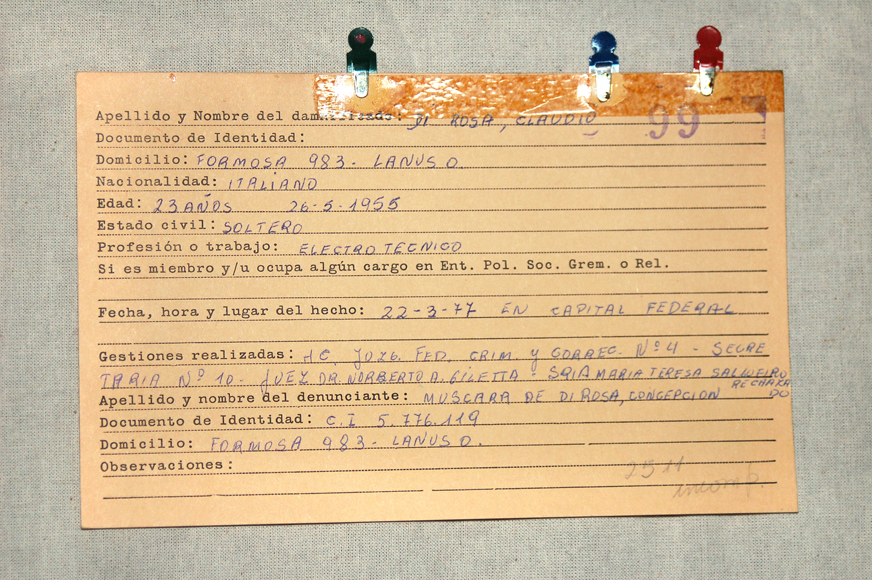 Apellido y Nombre del damnificado: DI ROSA, CLAUDIO 99
Documento de Identidad:
Domicilio: FORMOSA 983 - LANUS O.
Nacionalidad: ITALIANO
Edad: 23 AÑOS 26-5-1955
Estado civil: SOLTERO
Profesión o trabajo: ELECTROTECNICO
Si es miembro y/u ocupa algún cargo en Ent. Pol. Soc. Grem. o Rel.
Fecha, hora y lugar del hecho: 22-3-77 EN CAPITAL FEDERAL
Gestiones realizadas: JUZG. FED. CRIM. y CORREC. Nº 4 - SECRE
TARIA Nº 10 - JUEZ DR. NORBERTO A. GILETTA - SRIA MARIA TERESA SALGUEIRO
RECHAZA
DO
Apellido y nombre del denunciante: MUSCARA DE DI ROSA, CONCEPCION
Documento de Identidad: C.I 5.776.119
Domicilio: FORMOSA 983 - LANUS O.
Observaciones:
2511